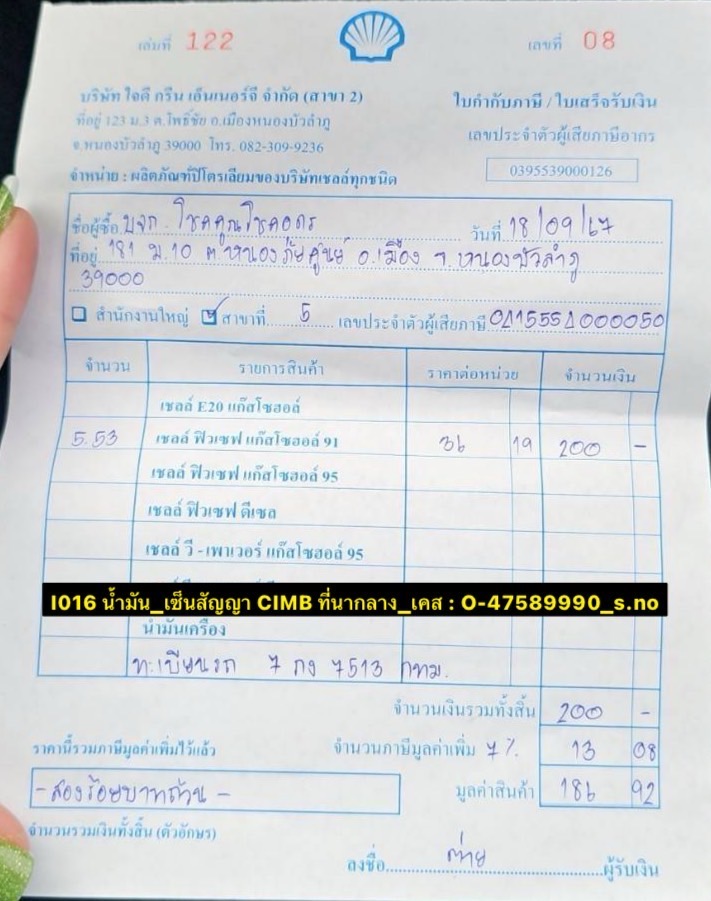 เล่มที่ 122
เลขที่ 08
บริษัท ใจดี กรีน เอ็นเนอร์จี จำกัด (สาขา 2)
ใบกำกับภาษี / ใบเสร็จรับเงิน
ที่อยู่ 123 ม.3 ต.โพธิ์ชัย อ.เมืองหนองบัวลำภู
เลขประจำตัวผู้เสียภาษีอากร
จ.หนองบัวลำภู 39000 โทร. 082-309-9236
0395539000126
จำหน่าย : ผลิตภัณฑ์ปิโตรเลียมของบริษัทเชลล์ทุกชนิด
ชื่อผู้ซื้อ บจก. โชคคูณโชคอดร วันที่ 18/09/67
ที่อยู่ 181 ม.10 ต.หนองภัยศูนย์ อ.เมือง จ.หนองบัวลำภู
39000
สำนักงานใหญ่ สาขาที่ 5 เลขประจำตัวผู้เสียภาษี
จำนวน รายการสินค้า ราคาต่อหน่วย จำนวนเงิน
เชลล์ E20 แก๊สโซฮอล์
5.53 เชลล์ ฟิวเซฟ แก๊สโซฮอล์ 91 36 19 200 -
เชลล์ ฟิวเซฟ แก๊สโซฮอล์ 95
เชลล์ ฟิวเซฟ ดีเซล
เชลล์ วี - เพาเวอร์ แก๊สโซฮอล์ 95
I016 น้ำมัน_เซ็นสัญญา CIMB ที่นากลาง_เคส : O-47589990_s.no
น้ำมันเครื่อง
ทะเบียนรถ 7 กง 7513 กทม.
จำนวนเงินรวมทั้งสิ้น 200 -
ราคานี้รวมภาษีมูลค่าเพิ่มไว้แล้ว จำนวนภาษีมูลค่าเพิ่ม 7%. 13 08
- สองร้อยบาทถ้วน - มูลค่าสินค้า 186 92
จำนวนรวมเงินทั้งสิ้น (ตัวอักษร)
ลงชื่อ ต่าย ผู้รับเงิน